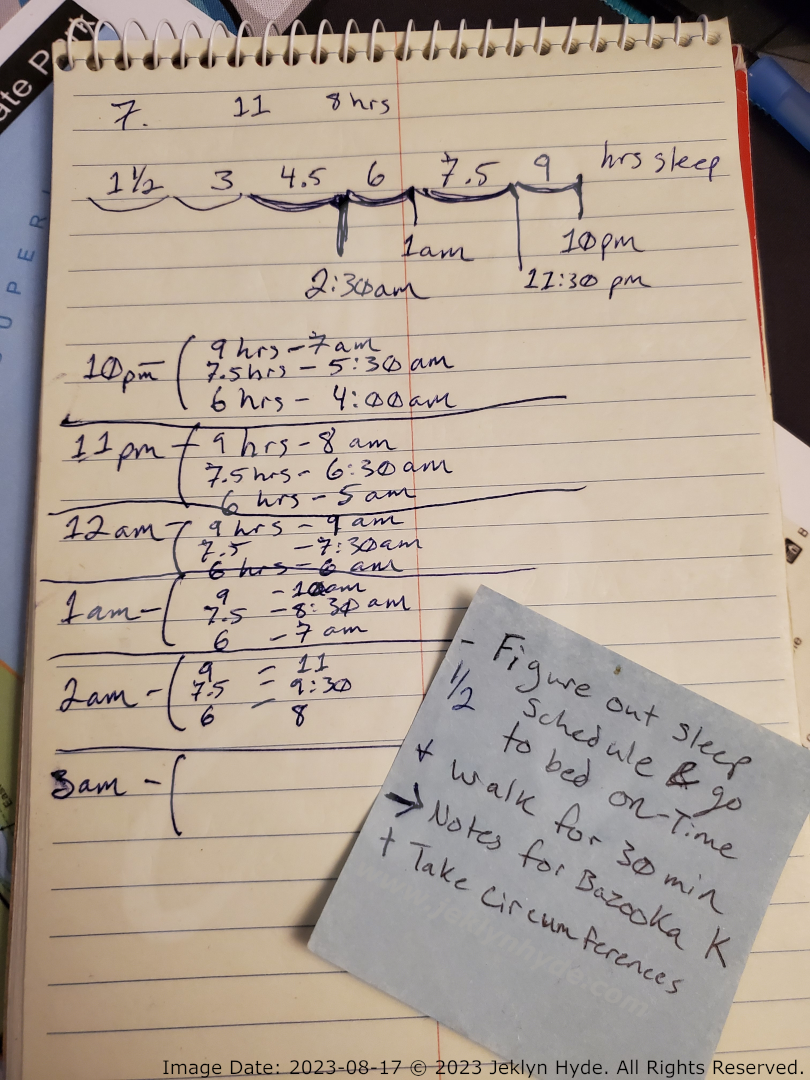 ate Park
SUPERI
7. 11 8hrs
1½ 3 4.5 6 7.5 9 hrs sleep
1am 10pm
2:30am 11:30 pm
10pm - 9 hrs - 7 am
7.5hrs - 5:30 am
6 hrs - 4:00am
11pm - 9 hrs - 8 am
7.5 hrs - 6:30am
6 hrs - 5 am
12am - 9 hrs - 9 am
7.5 - 7:30am
6 hrs - 6 am
1am - 9 - 10am
7.5 - 8:30 am
6 - 7 am
2am - 9 - 11
7.5 = 9:30
6 - 8
3am -
- Figure out sleep
1/2 schedule & go
to bed on-Time
+ Walk for 30 min
→ Notes for Bazooka K
+ Take circumferences
www.jeklynhyde.com
Image Date: 2023-08-17 © 2023 Jeklyn Hyde. All Rights Reserved.